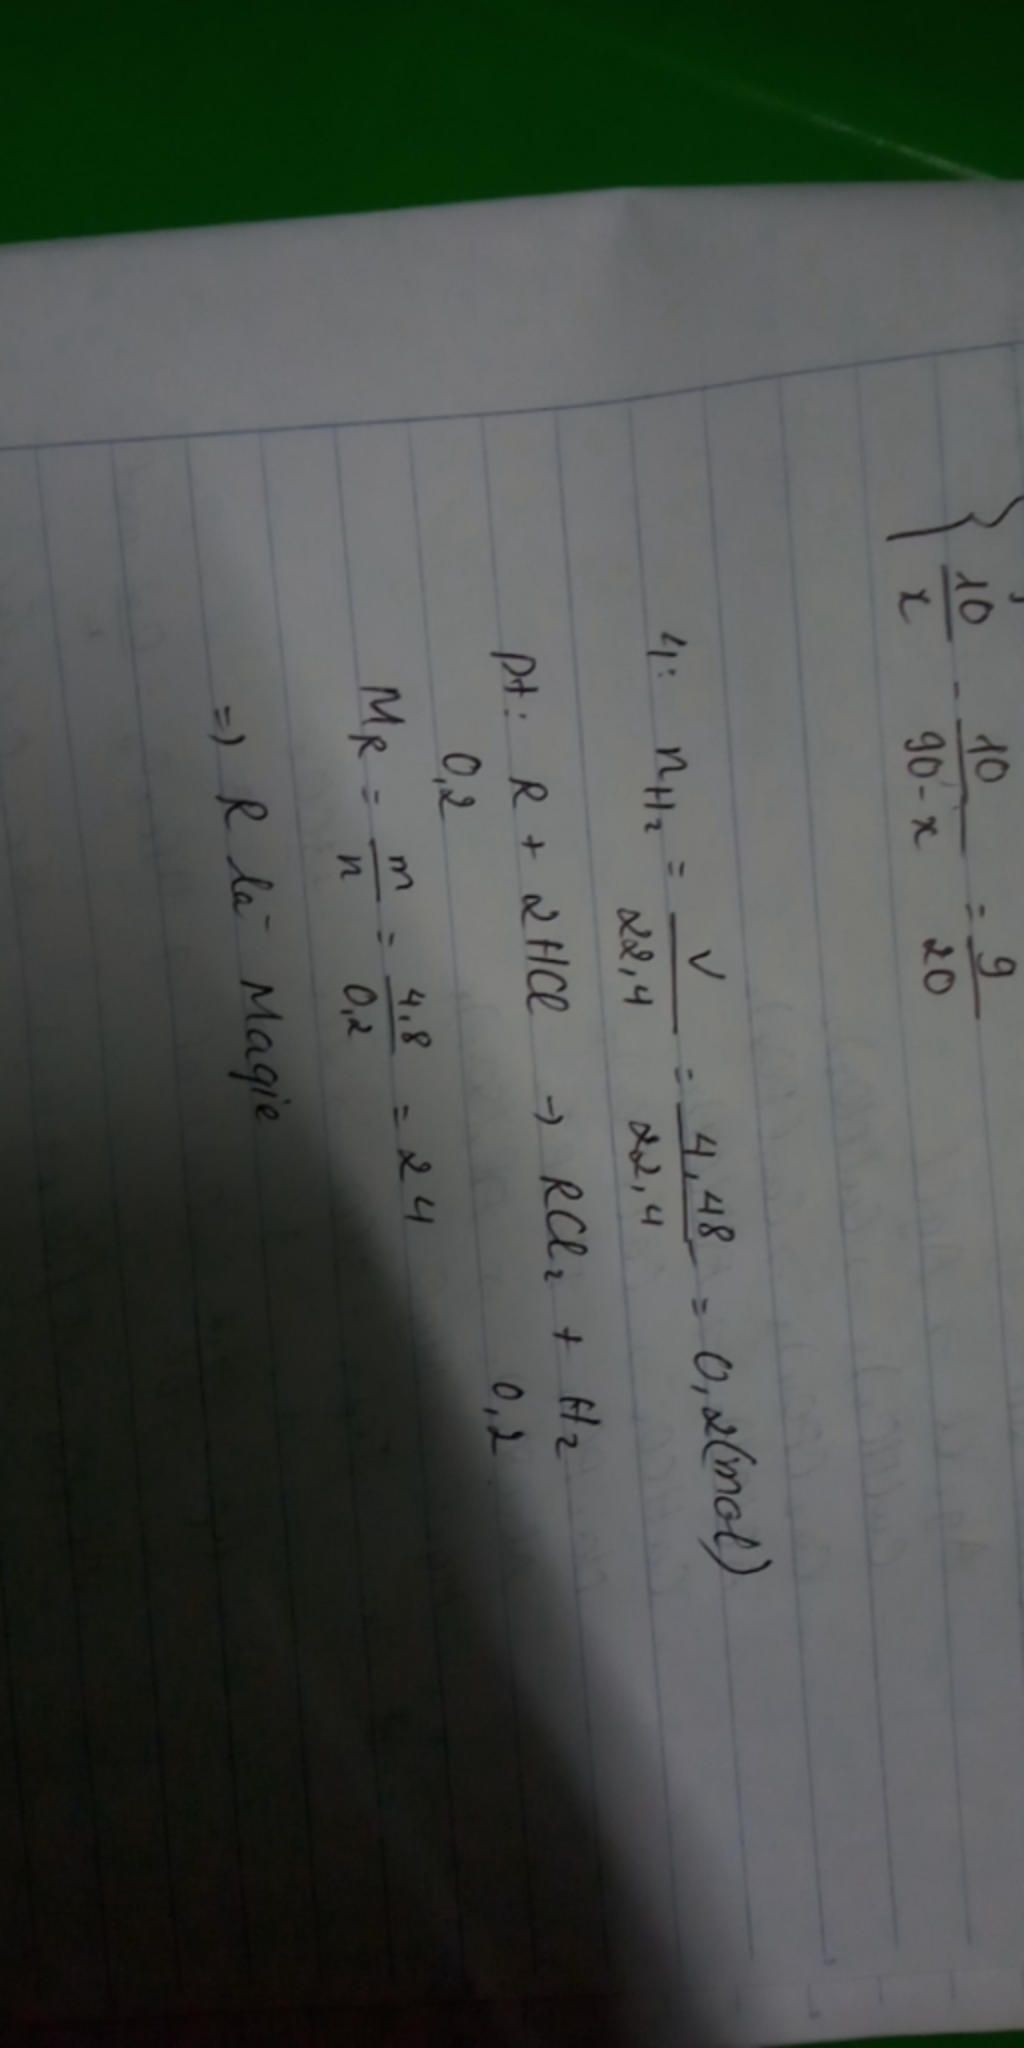 10/x - 10/90-x = 9/20
4: nH₂ = V/22,4 = 4,48/22,4 = 0,2(mol)
pt: R + 2HCl → RCl₂ + H₂
0,2 0,2
MR = m/n = 4,8/0,2 = 24
=> R là Magie